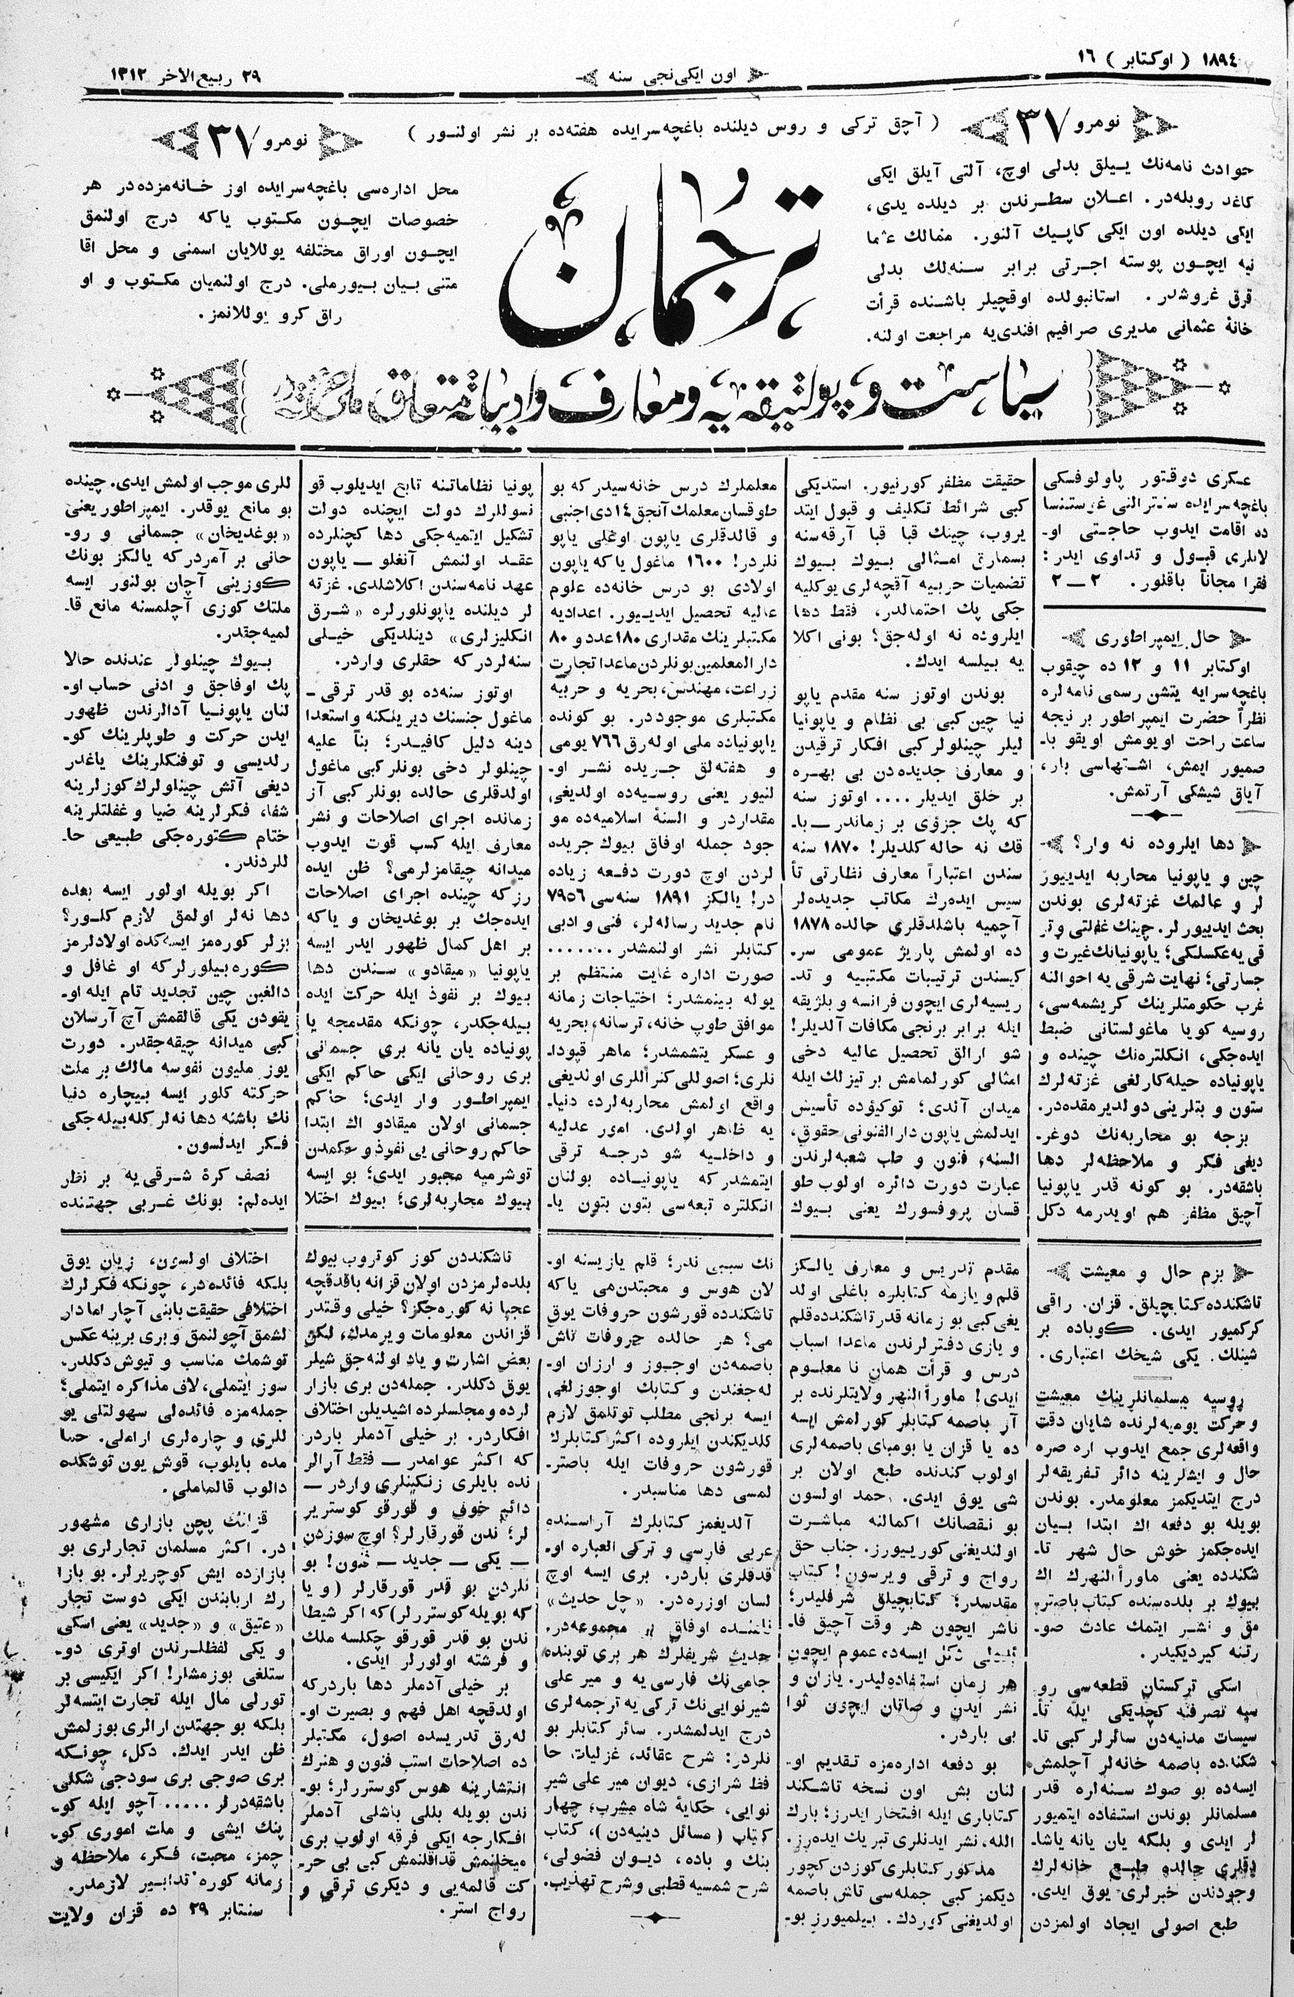 ١٨٩٤ ( اوكتابر ) ١٦
اون ايكى نجى سنه
٢٩ ربيع الاخر ١٣١٢
نومرو ٣٧
( آچق تركى و روس ديلنده باغچه سرايده هفته‌ده بر نشر اولنور )
نومرو ٣٧
حوادث نامه‌نك ييلق بدلى اوچ، آلتى آيلق ايكى
كاغد روبله‌در. اعلان سطرندن بر ديلده يدى،
ايكى ديلده اون ايكى كاپيك آلنور. ممالك عثما
نيه ايچون پوسته اجرتى برابر سنه‌لك بدلى
قرق غروشدر. استانبولده اوقچيلر باشنده قرأت
خانۀ عثمانى مديرى صرافيم افندى‌يه مراجعت اولنه.
ترجمان
محل اداره‌سى باغچه سرايده اوز خانه‌مزده‌در هر
خصوصات ايچون مكتوب ياكه درج اولنمق
ايچون اوراق مختلفه يوللايان اسمنى و محل اقا
متنى بيان بيورملى. درج اولنميان مكتوب و او
راق كرو يوللانمز.
سياست و پولتيقه‌يه و معارف و ادبياته متعلق
عسكرى دوقتور پاولوفسكى
باغچه سرايده سنترالنى غوستنسا
ده اقامت ايدوب حاجتى او-
لانلرى قبول و تداوى ايدر:
فقرا مجاناً باقلور. ٢—٢
حال ايمپراطورى
اوكتابر ١١ و ١٢ ده چيقوب
باغچه سرايه يتشن رسمى نامه‌لره
نظراً حضرت ايمپراطور بر نيچه
ساعت راحت اويومش اويقو با-
صميور ايمش، اشتهاسى بار،
آياق شيشكى آرتمش.
دها ايلروده نه وار؟
چين و ياپونيا محاربه ايدييور
لر و عالمك غزته‌لرى بوندن
بحث ايدييور لر. چينك غفلتى و تر
قى‌يه عكسلكى؛ ياپونيانك غيرت و
جسارتى؛ نهايت شرقى يه احوالنه
غرب حكومتلرينك كريشمه‌سى،
روسيه كويا ماغولستانى ضبط
ايده‌جكى، انكلتره‌نك چينده و
ياپونياده حيله‌كارلغى غزته‌لرك
ستون و بتلرينى دولديرمقده‌در.
بزجه بو محاربه‌نك دوغر-
ديغى فكر و ملاحظه‌لر دها
باشقه‌در. بو كونه قدر ياپونيا
آچيق مظفر هم اويدرمه دكل
حقيقت مظفر كورنيور. استديكى
كبى شرائط تكليف و قبول ايتد
يروب، چينك قبا قبا آرقه‌سنه
بسمارق امثالى بيوك بيوك
تضميات حربيه آقچه‌لرى يوكليه
جكى پك احتمالدر، فقط دها
ايلروده نه اوله‌جق؟ بونى اكلا
يه بيلسه ايدك.
بوندن اوتوز سنه مقدم ياپو
نيا چين كبى بى نظام و ياپونيا
ليلر چينلولر كبى افكار ترقيدن
و معارف جديده‌دن بى بهره
بر خلق ايديلر.... اوتوز سنه
كه پك جزؤى بر زماندر — با-
قك نه حاله كلديلر! ١٨٧٠ سنه
سندن اعتباراً معارف نظارتى تأ
سيس ايده‌رك مكاتب جديده‌لر
آچميه باشلدقلرى حالده ١٨٧٨
ده اولمش پاريژ عمومى سر-
كيسندن ترتيبات مكتبيه و تد-
ريسيه‌لرى ايچون فرانسه و بلژيقه
ايله برابر برنجى مكافات آلديلر!
شو ارالق تحصيل عاليه دخى
امثالى كورلمامش بر تيزلك ايله
ميدان آلدى؛ توكيؤده تأسيس
ايدلمش ياپون دار الفنونى حقوق،
السنه، فنون و طب شعبه‌لرندن
عبارت دورت دائره اولوب طو
قسان پروفسورك يعنى بيوك
معلملرك درس خانه سيدركه بو
طوقسان معلمك آنجق ١٤ دى اجنبى
و قالدقلرى ياپون اوغلى ياپو
نلردر! ١٦٠٠ ماغول ياكه ياپون
اولادى بو درس خانه‌ده علوم
عاليه تحصيل ايدييور. اعداديه
مكتبلرينك مقدارى ١٨٠ عدد و ٨٠
دار المعلمين بونلردن ماعدا تجارت
زراعت، مهندس، بحريه و حربيه
مكتبلرى موجوددر. بو كونده
ياپونياده ملى اوله‌رق ٧٦٦ يومى
و هفته‌لق جريده نشر او-
لنيور يعنى روسيه‌ده اولديغى
مقداردر و السنۀ اسلاميه‌ده مو
جود جمله اوفاق بيوك جريده
لردن اوچ دورت دفعه زياده
در! يالكز ١٨٩١ سنه‌سى ٧٩٥٦
نام جديد رساله‌لر، فنى و ادبى
كتابلر نشر اولنمشدر.......
صورت اداره غايت منتظم بر
يوله بينمشدر؛ احتياجات زمانه
موافق طوپ خانه، ترسانه، بحريه
و عسكر يتشمشدر؛ ماهر قپودا-
نلرى؛ اصوللى كنراللرى اولديغى
واقع اولمش محاربه‌لرده دنيا-
يه ظاهر اولدى. امور عدليه
و داخليه شو درجه ترقى
ايتمشدركه ياپونياده بولنان
انكلتره تبعه‌سى بتون بتون يا-
پونيا نظاماتنه تابع ايديلوب قو
نسوللرك دولت ايچنده دولت
تشكيل ايتميه‌جكى دها كچنلرده
عقد اولنمش آنغلو — ياپون
عهد نامه سندن اكلاشلدى. غزته
لر ديلنده ياپونلورلره «شرق
انكليزلرى» دينلديكى خيلى
سنه‌لردركه حقلرى واردر.
اوتوز سنه‌ده بو قدر ترقى-
ماغول جنسنك ديرينكنه و استعدا
دينه دليل كافيدر؛ بنأ عليه
چينلولر دخى بونلر كبى ماغول
اولدقلرى حالده بونلر كبى آز
زمانده اجراى اصلاحات و نشر
معارف ايله كسب قوت ايدوب
ميدانه چيقامزلرمى؟ ظن ايده
رز كه چينده اجراى اصلاحات
ايده‌جك بر بوغديخان و ياكه
بر اهل كمال ظهور ايدر ايسه
ياپونيا «ميقادو» سندن دها
بيوك بر نفوذ ايله حركت ايده
بيله‌جكدر، چونكه مقدمجه يا
پونياده يان يانه برى جسمانى
برى روحانى ايكى حاكم ايكى
ايمپراطور وار ايدى؛ حاكم
جسمانى اولان ميقادو اك ابتدا
حاكم روحانى يى نفوذ و حكمدن
توشرميه مجبور ايدى؛ بو ايسه
بيوك محاربه‌لرى؛ بيوك اختلا
للرى موجب اولمش ايدى. چينده
بو مانع يوقدر. ايمپراطور يعنى
«بوغديخان» جسمانى و رو-
حانى بر آمردركه يالكز بونك
كوزينى آچان بولنور ايسه
ملتك كوزى آچلمسنه مانع قا-
لميه‌جقدر.
بيوك چينلولر عندنده حالا
پك اوفاجق و ادنى حساب او-
لنان ياپونيا آدالرندن ظهور
ايدن حركت و طوپلرينك كو-
رلديسى و توفنكلرينك ياغدر
ديغى آتش چينلولرك كوزلرينه
شفا، فكرلرينه ضيا و غفلتلرينه
ختام كتوره‌جكى طبيعى حا-
للردندر.
اكر بويله اولور ايسه بعده
دها نه‌لر اولمق لازم كلور؟
بزلر كوره‌مز ايسه‌كده اولادلرمز
كوره بيلورلركه او غافل و
دالغين چين تجديد تام ايله او-
يقودن يكى قالقمش آچ آرسلان
كبى ميدانه چيقه‌جقدر. دورت
يوز مليون نفوسه مالك بر ملت
حركته كلور ايسه بيچاره دنيا
نك باشنه دها نه‌لر كله‌بيله‌جكى
فكر ايدلسون.
نصف كرۀ شرقى‌يه بر نظر
ايده‌لم: بونك غربى جهتنده
بزم حال و معيشت
تاشكندده كتابچيلق. قزان. راقى
كركميور ايدى. كوباده بر
شينلك. يكى شيخك اعتبارى.
روسيه مسلمانلرينك معيشت
و حركت يوميه‌لرنده شايان دقت
واقعه‌لرى جمع ايدوب اره صره
حال و ايشلرينه دائر تفريقه‌لر
درج ايتديكمز معلومدر. بوندن
بويله بو دفعه اك ابتدا بيان
ايده‌جكمز خوش حال شهر تا-
شكنده يعنى ماورأالنهرك اك
بيوك بر بلده‌سنده كتاب باصتر-
مق و نشر ايتمك عادت صو-
رتنه كيرديكيدر.
اسكى تركستان قطعه‌سى رو
سيه تصرفنه كچديكى ايله تأ-
سيسات مدنيه‌دن سائرلر كبى تا-
شكنده باصمه خانه‌لر آچلمش
ايسه‌ده بو صوك سنه‌لره قدر
مسلمانلر بوندن استفاده ايتميور
لر ايدى و بلكه يان يانه ياشا-
دقلرى حالده طبع خانه‌لرك
وجودندن خبرلرى يوق ايدى.
طبع اصولى ايجاد اولمزدن
مقدم تدريس و معارف يالكز
قلم و يازمه كتابلره باغلى اولد
يغى كبى بو زمانه قدر تاشكندده قلم
و يازى دفترلرندن ماعدا اسباب
درس و قرأت همان نا معلوم
ايدى! ماورأالنهر ولايتلرنده بر
آز باصمه كتابلر كورلمش ايسه
ده يا قزان يا بومباى باصمه‌لرى
اولوب كندنده طبع اولان بر
شى يوق ايدى. حمد اولسون
بو نقصانك اكمالنه مباشرت
اولنديغنى كورييورز. جناب حق
رواج و ترقى ويرسون! كتاب
مقدسدر؛ كتابچيلق شرفليدر؛
ناشر ايچون هر وقت آچيق فا-
ئده‌لى دكل ايسه‌ده عموم ايچون
هر زمان استفاده‌ليدر. يازان و
نشر ايدن و صاتان ايچون ثوا
بى باردر.
بو دفعه اداره‌مزه تقديم او-
لنان بش اون نسخه تاشكند
كتابارى ايله افتخار ايدرز؛ بارك
الله، نشر ايدنلرى تبريك ايده‌رز.
مذكور كتابلرى كوزدن كچور
ديكمز كبى جمله‌سى تاش باصمه
اولديغنى كوردك. بيلميورز بو-
نك سببى ندر؛ قلم يازيسنه او-
لان هوس و محبتدن‌مى ياكه
تاشكندده قورشون حروفات يوق
مى؟ هر حالده حروفات تاش
باصمه‌دن اوجوز و ارزان او-
له‌جغندن و كتابك اوجوزلغى
ايسه برنجى مطلب توتلمق لازم
كلديكندن ايلروده اكثر كتابلرك
قورشون حروفات ايله باصتر-
لمسى دها مناسبدر.
آلديغمز كتابلرك آراسنده
عربى فارسى و تركى العباره او-
قدقلرى باردر. برى ايسه اوچ
لسان اوزره‌در. «چل حديث»
نامنده اوفاق بر مجموعه‌در.
حديث شريفلرك هر برى توبنده
جامى‌نك فارسى يه و مير على
شير نوايى‌نك تركى يه ترجمه‌لرى
درج ايدلمشدر. سائر كتابلر بو
نلردر: شرح عقائد، غزليات حا
فظ شرازى، ديوان مير على شير
نوايى، حكايۀ شاه مشرب، چهار
كتاب (مسائل دينيه‌دن)، كتاب
بنك و باده، ديوان فضولى،
شرح شمسيه قطبى و شرح تهذيب.
تاشكندن كوز كوتروب بيوك
بلده‌لرمزدن اولان قزانه باقدقچه
عجبا نه كوره‌جكز؟ خيلى وقتدر
قزاندن معلومات ويرمدك، ليكن
بعض اشارت و ياد اولنه‌جق شيلر
يوق دكلدر. جمله‌دن برى بازار
لرده و مجلسلرده اشيديلن اختلاف
افكاردر. بر خيلى آدملر باردر
كه اكثر عوامدر — فقط آرالر
نده بايلرى زنكينلرى واردر —
دائم خوف و قورقو كوسترير
لر؛ ندن قورقارلر؟ اوچ سوزدن
— يكى — جديد — فنون! بو
نلردن بو قدر قورقارلر (و يا
كه بويله كوسترر لر) كه اكر شيطا
ندن بو قدر قورقو چكلسه ملك
و فرشته اولورلر ايدى.
بر خيلى آدملر دها باردركه
اولدقچه اهل فهم و بصيرت او-
له‌رق تدريسده اصول، مكتبلر
ده اصلاحات استب فنون و هنرك
انتشارينه هوس كوسترر لر؛ بو-
ندن بويله بللى باشلى آدملر
افكارجه ايكى فرقه اولوب برى
ميخلنمش قداقلنمش كبى بى حر-
كت قالمه‌يى و ديكرى ترقى و
رواج استر.
اختلاف اولسون، زيان يوق
بلكه فائده‌در، چونكه فكرلرك
اختلافى حقيقت بابنى آچار اما دار
لشمق آچولنمق و برى برينه عكس
توشمك مناسب و تيوش دكلدر.
سوز ايتملى، لاف مذاكره ايتملى؛
جمله‌مزه فائده‌لى سهولتلى يو
للرى و چاره‌لرى اراملى. حسا
مده بايلوب، قوش يون توشكده
دالوب قالماملى.
قزانك پچن بازارى مشهور
در. اكثر مسلمان تجارلرى بو
بازارده ايش كوچريرلر. بو بازا
رك اربابندن ايكى دوست تجار
«عتيق» و «جديد» يعنى اسكى
و يكى لفظلرندن اوترى دو-
ستلغى بوزمشلر! اكر ايكيسى بر
تورلى مال ايله تجارت ايتسه‌لر
بلكه بو جهتدن ارالرى بوزلمش
ظن ايدر ايدك. دكل، چونكه
برى صوجى برى سودجى شكلى
باشقه‌در لر..... آچو ايله كو-
پنك ايشى و ملت امورى كو-
چمز، محبت، فكر، ملاحظه و
زمانه كوره تدابير لازمدر.
سنتابر ٢٩ ده قزان ولايت